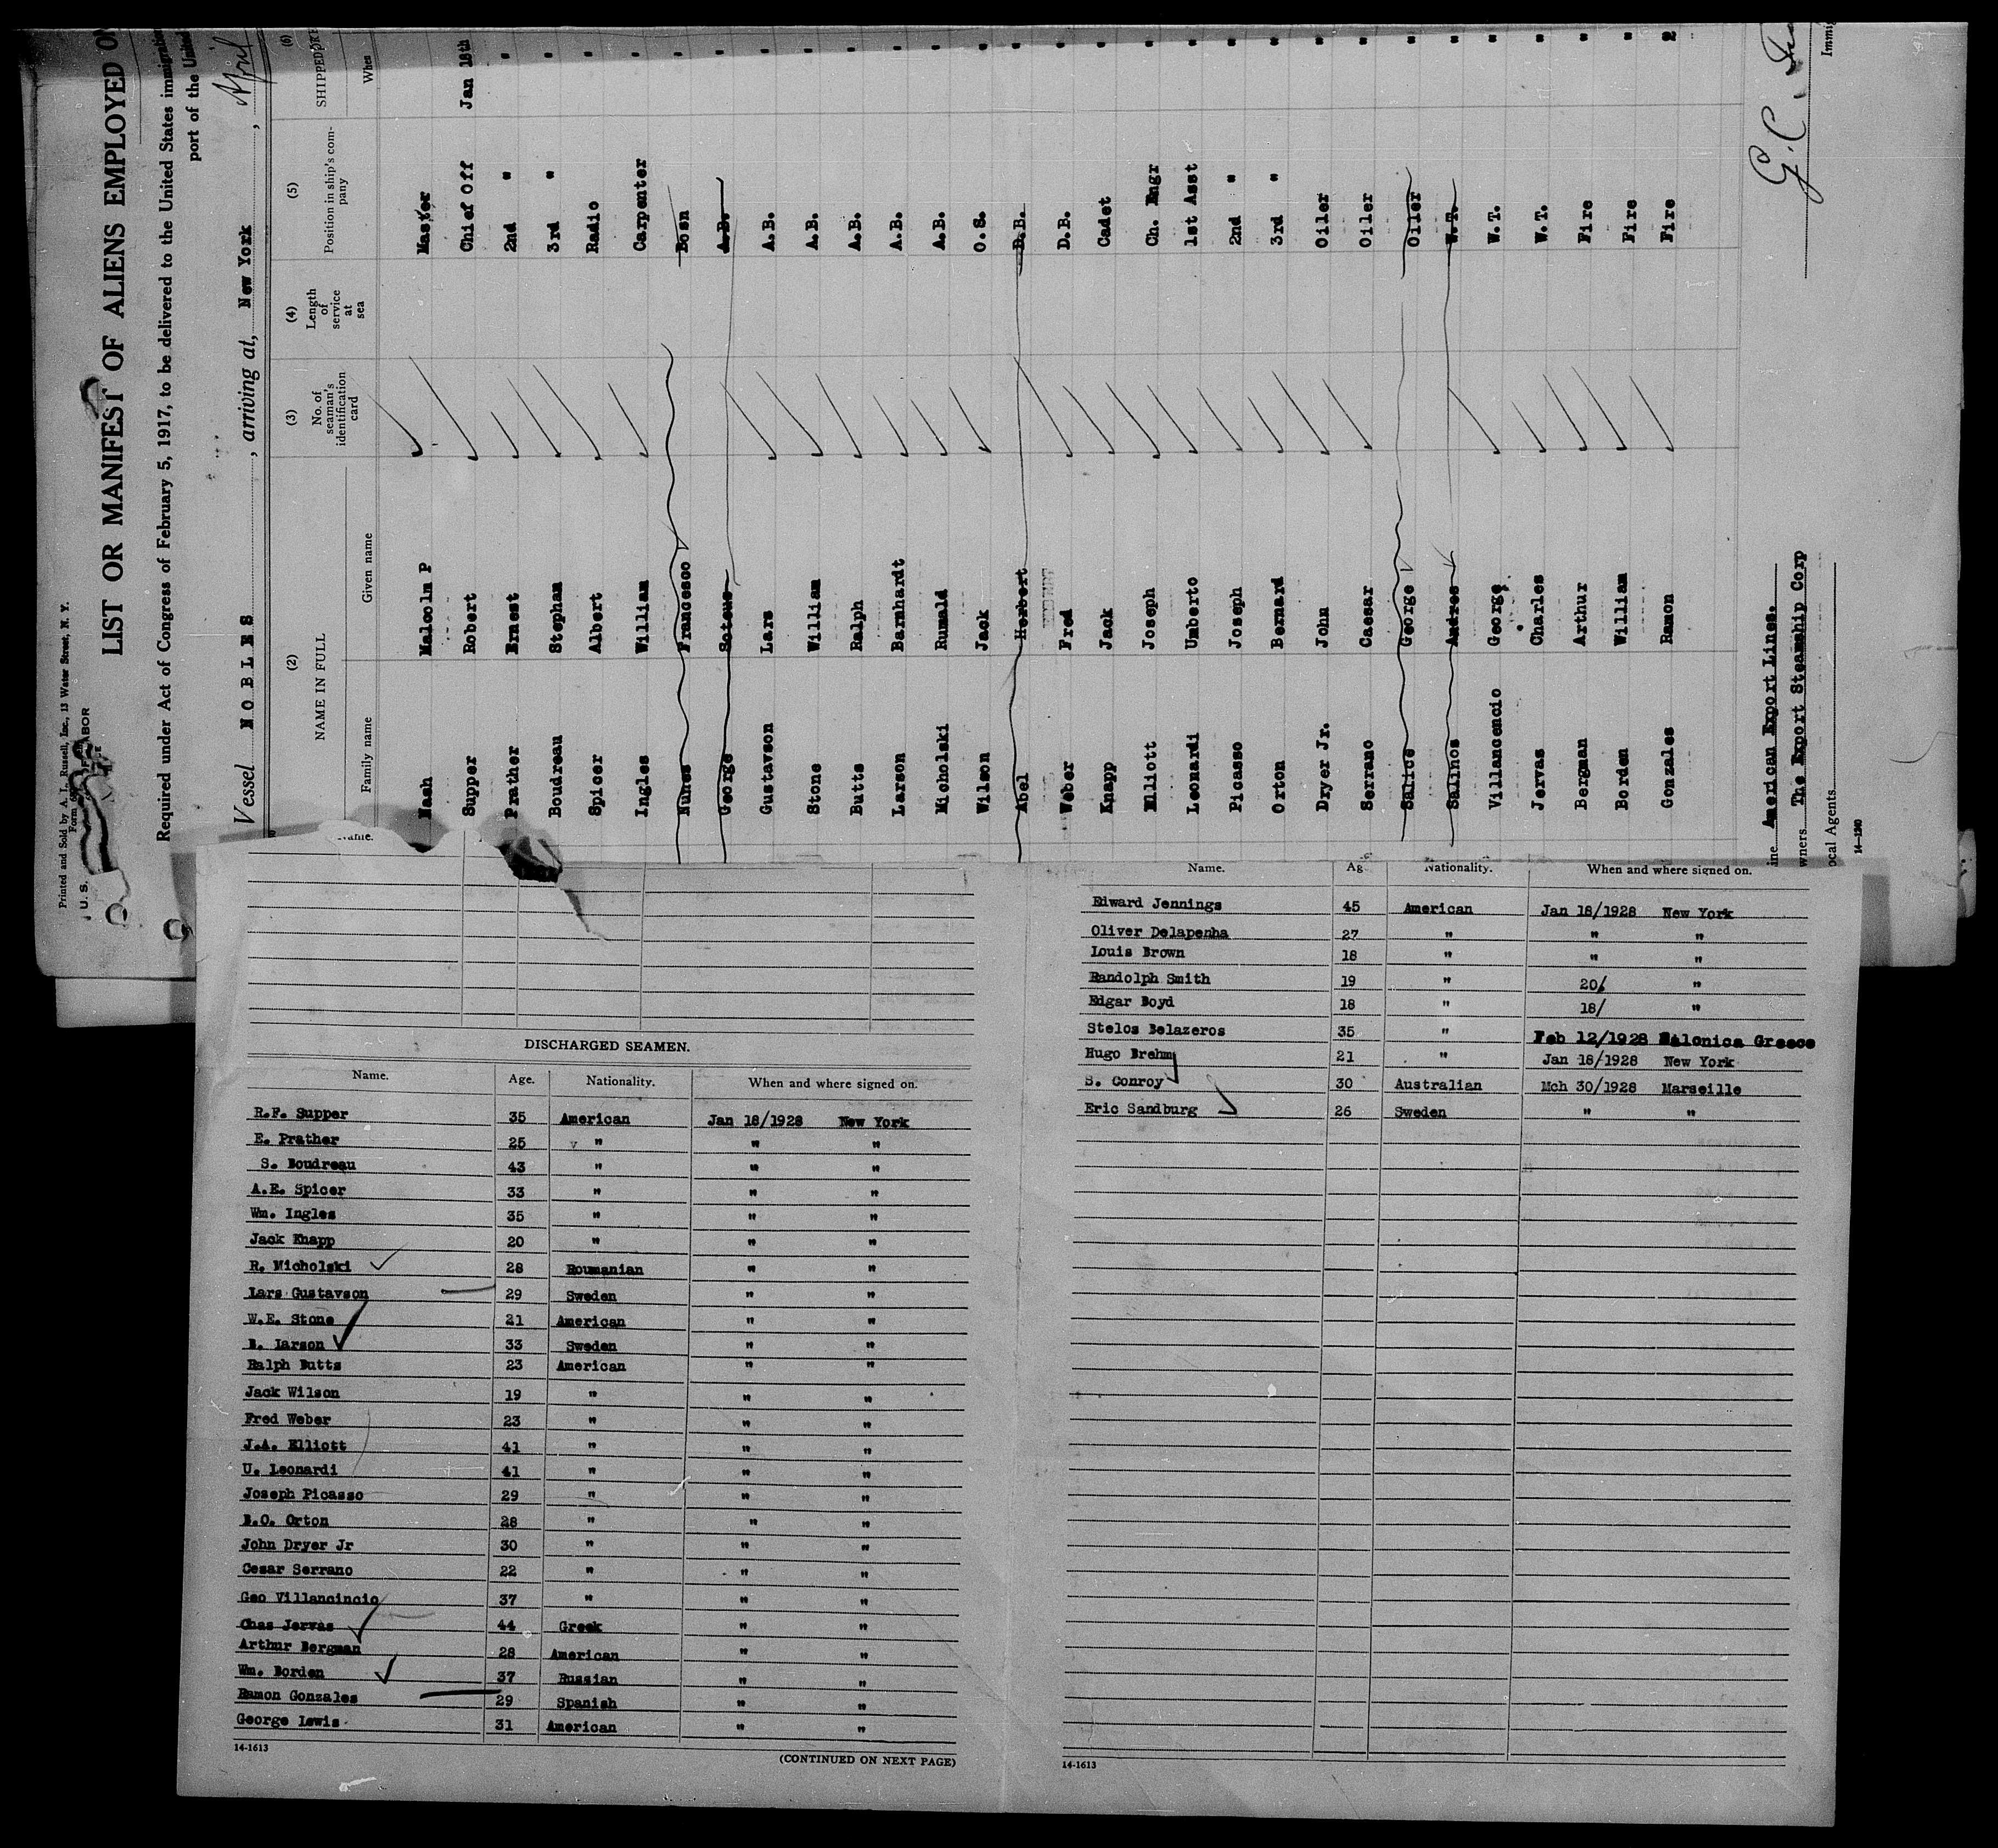 Printed and Sold by A. I. Russell, Inc., 13 Water Street, N. Y.
Form
U. S.
LABOR
LIST OR MANIFEST OF ALIENS EMPLOYED ON
Required under Act of Congress of February 5, 1917, to be delivered to the United States immigration
port of the United
Vessel NOBLES, arriving at, New York, April
(2) (3) (4) (5) (6)
NAME IN FULL No. of seaman's identification card Length of service at sea Position in ship's company SHIPPED OR E
Family name Given name When
Nash Malcolm P Master
Supper Robert Chief Off Jan 18th
Prather Ernest 2nd " "
Boudreau Stephan 3rd " "
Spicer Albert Radio "
Ingles William Carpenter "
Nunes Francesco Bosn "
George Soteus A.B. "
Gustavson Lars A.B. "
Stone William A.B. "
Butts Ralph A.B. "
Larson Barnhardt A.B. "
Micholski Rumald A.B. "
Wilson Jack O.S. "
Abel Herbert D.B. "
Weber Fred D.B. "
Knapp Jack Cadet "
Elliott Joseph Ch. Engr "
Leonardi Umberto 1st Asst "
Picasso Joseph 2nd " "
Orton Bernard 3rd " "
Dryer Jr. John Oiler "
Serrano Caesar Oiler "
Salice George Oiler "
Salinos Andres W.T. "
Villancencio George W.T. "
Jervas Charles W.T. "
Bergman Arthur Fire "
Borden William Fire "
Gonzales Ramon Fire 2
G.C.
Immig
ine American Export Lines.
wners The Export Steamship Corp
ocal Agents
14-1240
Name.
DISCHARGED SEAMEN.
Name. Age. Nationality. When and where signed on.
R.F. Supper 35 American Jan 18/1928 New York
E. Prather 25 " " "
S. Boudreau 43 " " "
A.E. Spicer 33 " " "
Wm. Ingles 35 " " "
Jack Knapp 20 " " "
R. Micholski 28 Roumanian " "
Lars Gustavson 29 Sweden " "
W.E. Stone 21 American " "
B. Larson 33 Sweden " "
Ralph Butts 23 American " "
Jack Wilson 19 " " "
Fred Weber 23 " " "
J.A. Elliott 41 " " "
U. Leonardi 41 " " "
Joseph Picasso 29 " " "
B.O. Orton 28 " " "
John Dryer Jr 30 " " "
Cesar Serrano 22 " " "
Geo Villancincio 37 " " "
Chas Jervas 44 Greek " "
Arthur Bergman 28 American " "
Wm. Borden 37 Russian " "
Ramon Gonzales 29 Spanish " "
George Lewis 31 American " "
14-1613
(CONTINUED ON NEXT PAGE)
Name. Ag Nationality. When and where signed on.
Edward Jennings 45 American Jan 18/1928 New York
Oliver Delapenha 27 " " "
Louis Brown 18 " " "
Randolph Smith 19 " 20/ "
Edgar Boyd 18 " 18/ "
Stelos Belazeros 35 " Feb 12/1928 Salonica Greece
Hugo Brehm 21 " Jan 18/1928 New York
S. Conroy 30 Australian Mch 30/1928 Marseille
Eric Sandburg 26 Sweden " "
14-1613